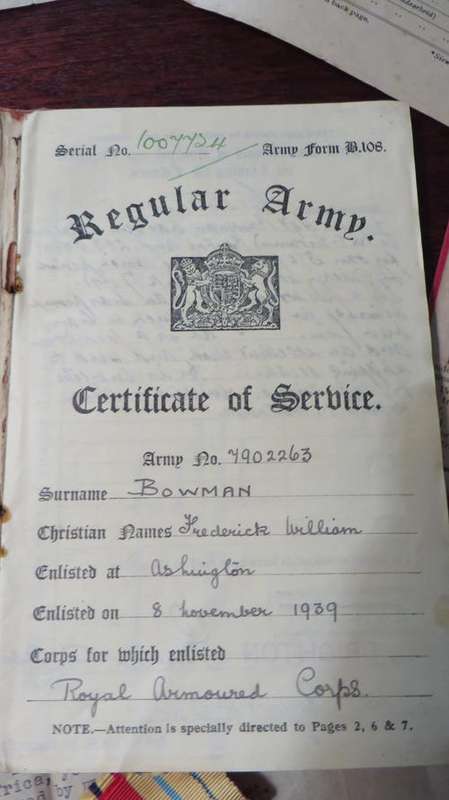 back page.
Serial No. 1007734 Army Form B.108.
Regular Army.
Certificate of Service.
Army No. 7902263
Surname BOWMAN
Christian Names Frederick William
Enlisted at Ashington
Enlisted on 8 november 1939
Corps for which enlisted
Royal Armoured Corps.
NOTE.—Attention is specially directed to Pages 2, 6 & 7.